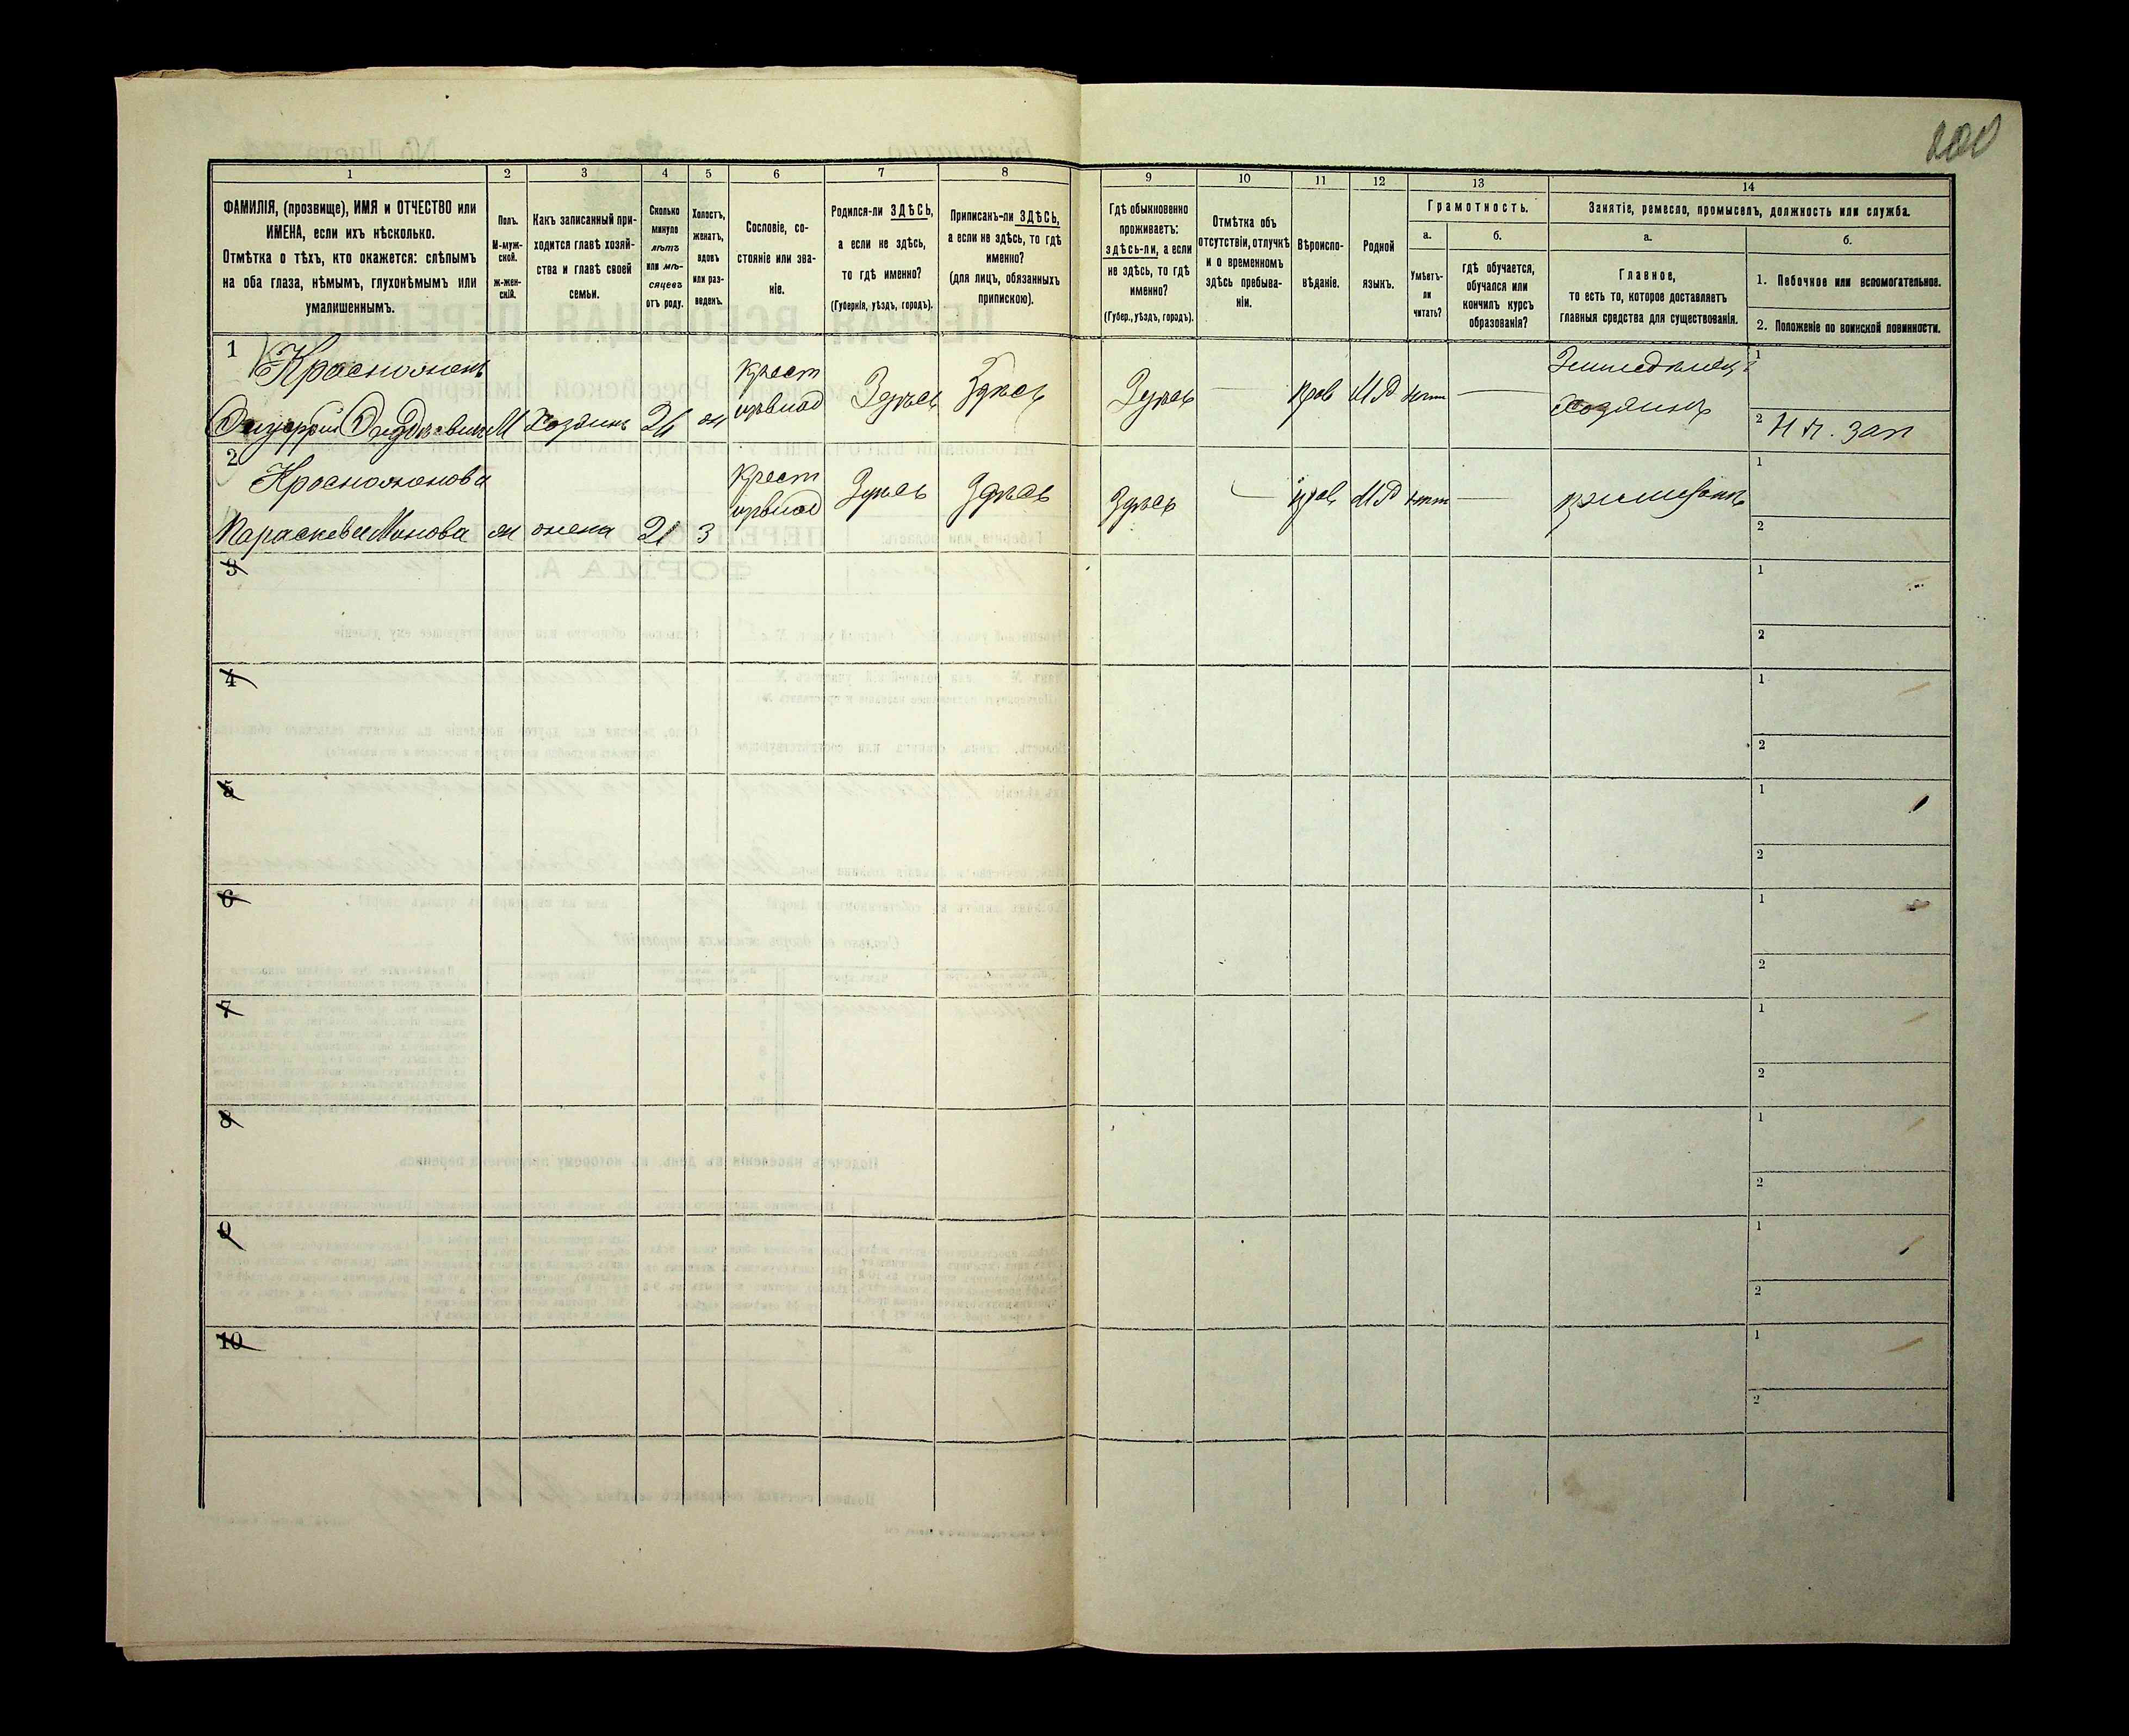 200
1 2 3 4 5 6 7 8 9 10 11 12 13 14
ФАМИЛІЯ, (прозвище), ИМЯ и ОТЧЕСТВО или
ИМЕНА, если ихъ нѣсколько.
Отмѣтка о тѣхъ, кто окажется: слѣпымъ
на оба глаза, нѣмымъ, глухонѣмымъ или
умалишеннымъ.
Полъ.
М-муж-
ской.
Ж-жен-
скій.
Какъ записанный при-
ходится главѣ хозяй-
ства и главѣ своей
семьи.
Сколько
минуло
лѣтъ
или мѣ-
сяцевъ
отъ роду.
Холостъ,
женатъ,
вдовъ
или раз-
веденъ.
Сословіе, со-
стояніе или зва-
ніе.
Родился-ли ЗДѢСЬ,
а если не здѣсь,
то гдѣ именно?
(Губернія, уѣздъ, городъ).
Приписанъ-ли ЗДѢСЬ,
а если не здѣсь, то гдѣ
именно?
(для лицъ, обязанныхъ
припискою).
Гдѣ обыкновенно
проживаетъ:
здѣсь-ли, а если
не здѣсь, то гдѣ
именно?
(Губер., уѣздъ, городъ).
Отмѣтка объ
отсутствіи, отлучкѣ
и о временномъ
здѣсь пребыва-
ніи.
Вѣроиспо-
вѣданіе.
Родной
языкъ.
Грамотность.
а.
Умѣетъ-
ли
читать?
б.
гдѣ обучается,
обучался или
кончилъ курсъ
образованія?
Занятіе, ремесло, промыселъ, должность или служба.
а.
Главное,
то есть то, которое доставляетъ
главныя средства для существованія.
б.
1. Побочное или вспомогательное.
2. Положеніе по воинской повинности.
1 Красножонъ крест Здѣсь Здѣсь Здѣсь — прав МР нѣт — Земледѣлец 1
М Хозяинъ ж Хозяинъ 2 Н Р. зап
2 Красножонова крест Здѣсь Здѣсь Здѣсь — прав МР нѣт — 1
Параскева ж жена 21 З 2
3 1
2
4 1
2
5 1
2
6 1
2
7 1
2
8 1
2
9 1
2
10 1
2